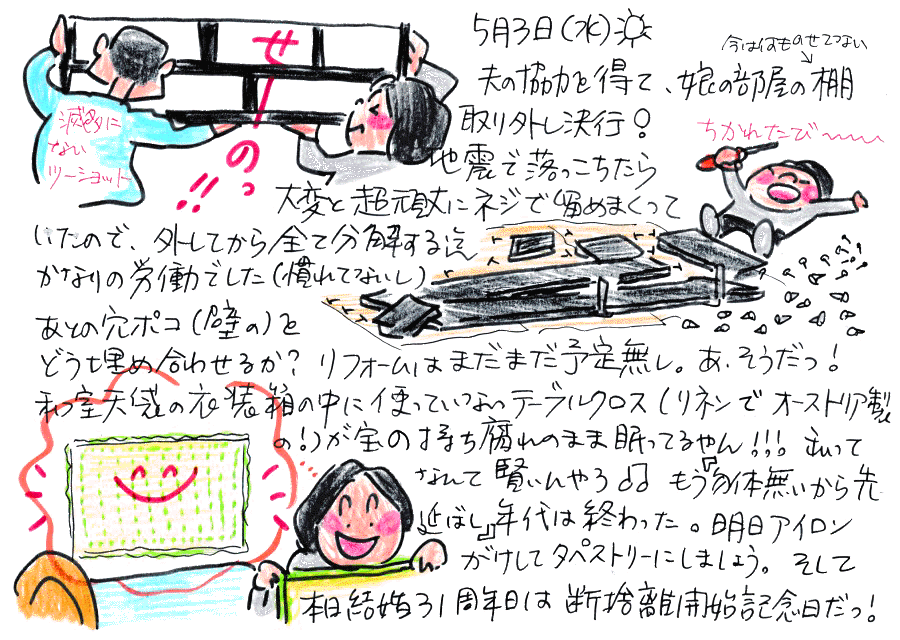 5月3日(水)
今は何ものせてつない
夫の協力を得て、娘の部屋の棚
取り外し決行!
せーのっ!!
滅多に
ない
ツーショット
ちかれたび〜
地震で落っこちたら
大変と超頑丈にネジで留めまくって
いたので、外してから全て分解する迄
かなりの労働でした(慣れてないし)
あとの穴ポコ(壁の)を
どうち埋め合わせるか? リフォームはまだまだ予定無し。あ、そうだっ!
和室天袋の衣装箱の中に使っていなっテーブルクロス(リネンで オーストリア製
の!)が宝の持ち腐れのまま眠ってるやん!!! わって
なんて賢いんやろ♫ もう『勿体無いから先
延ばし』年代は終わった。明日アイロン
がけしてタペストリーにしましょう。そして
本日結婚31周年日は断捨離開始記念日だっ!